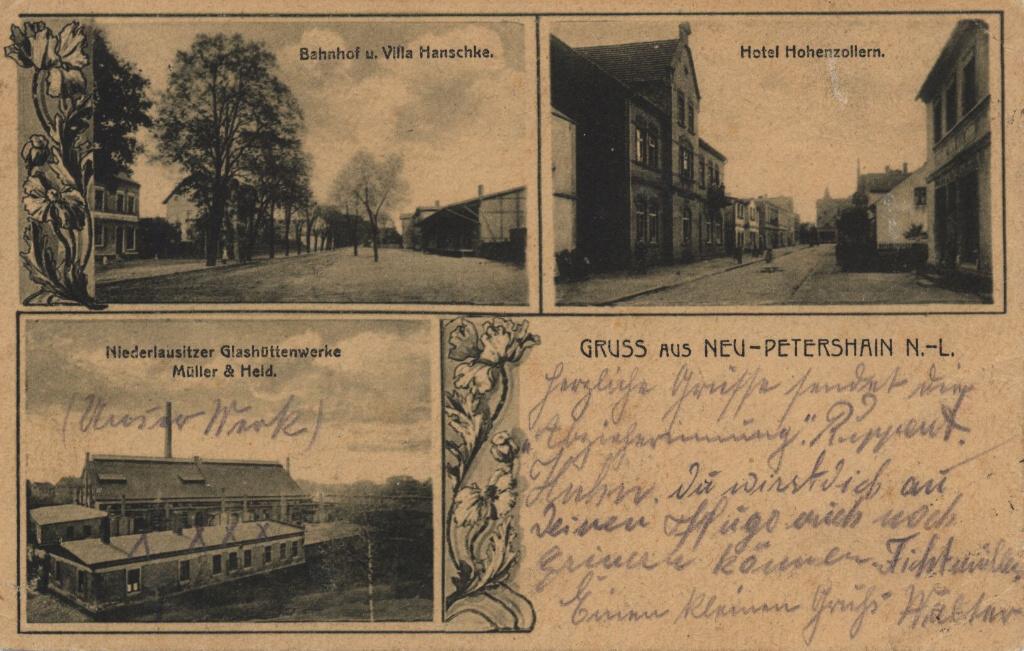 Bahnhof u. Villa Hanschke.
Hotel Hohenzollern.
Niederlausitzer Glashüttenwerke
Müller & Held.
(Unser Werk)
GRUSS AUS NEU-PETERSHAIN N.-L.
Herzliche Grüsse sendet die
Ruppert.
Huhn. Du wirst dich an
Deinen Hugo auch noch
können.
Einen kleinen Gruß Walter